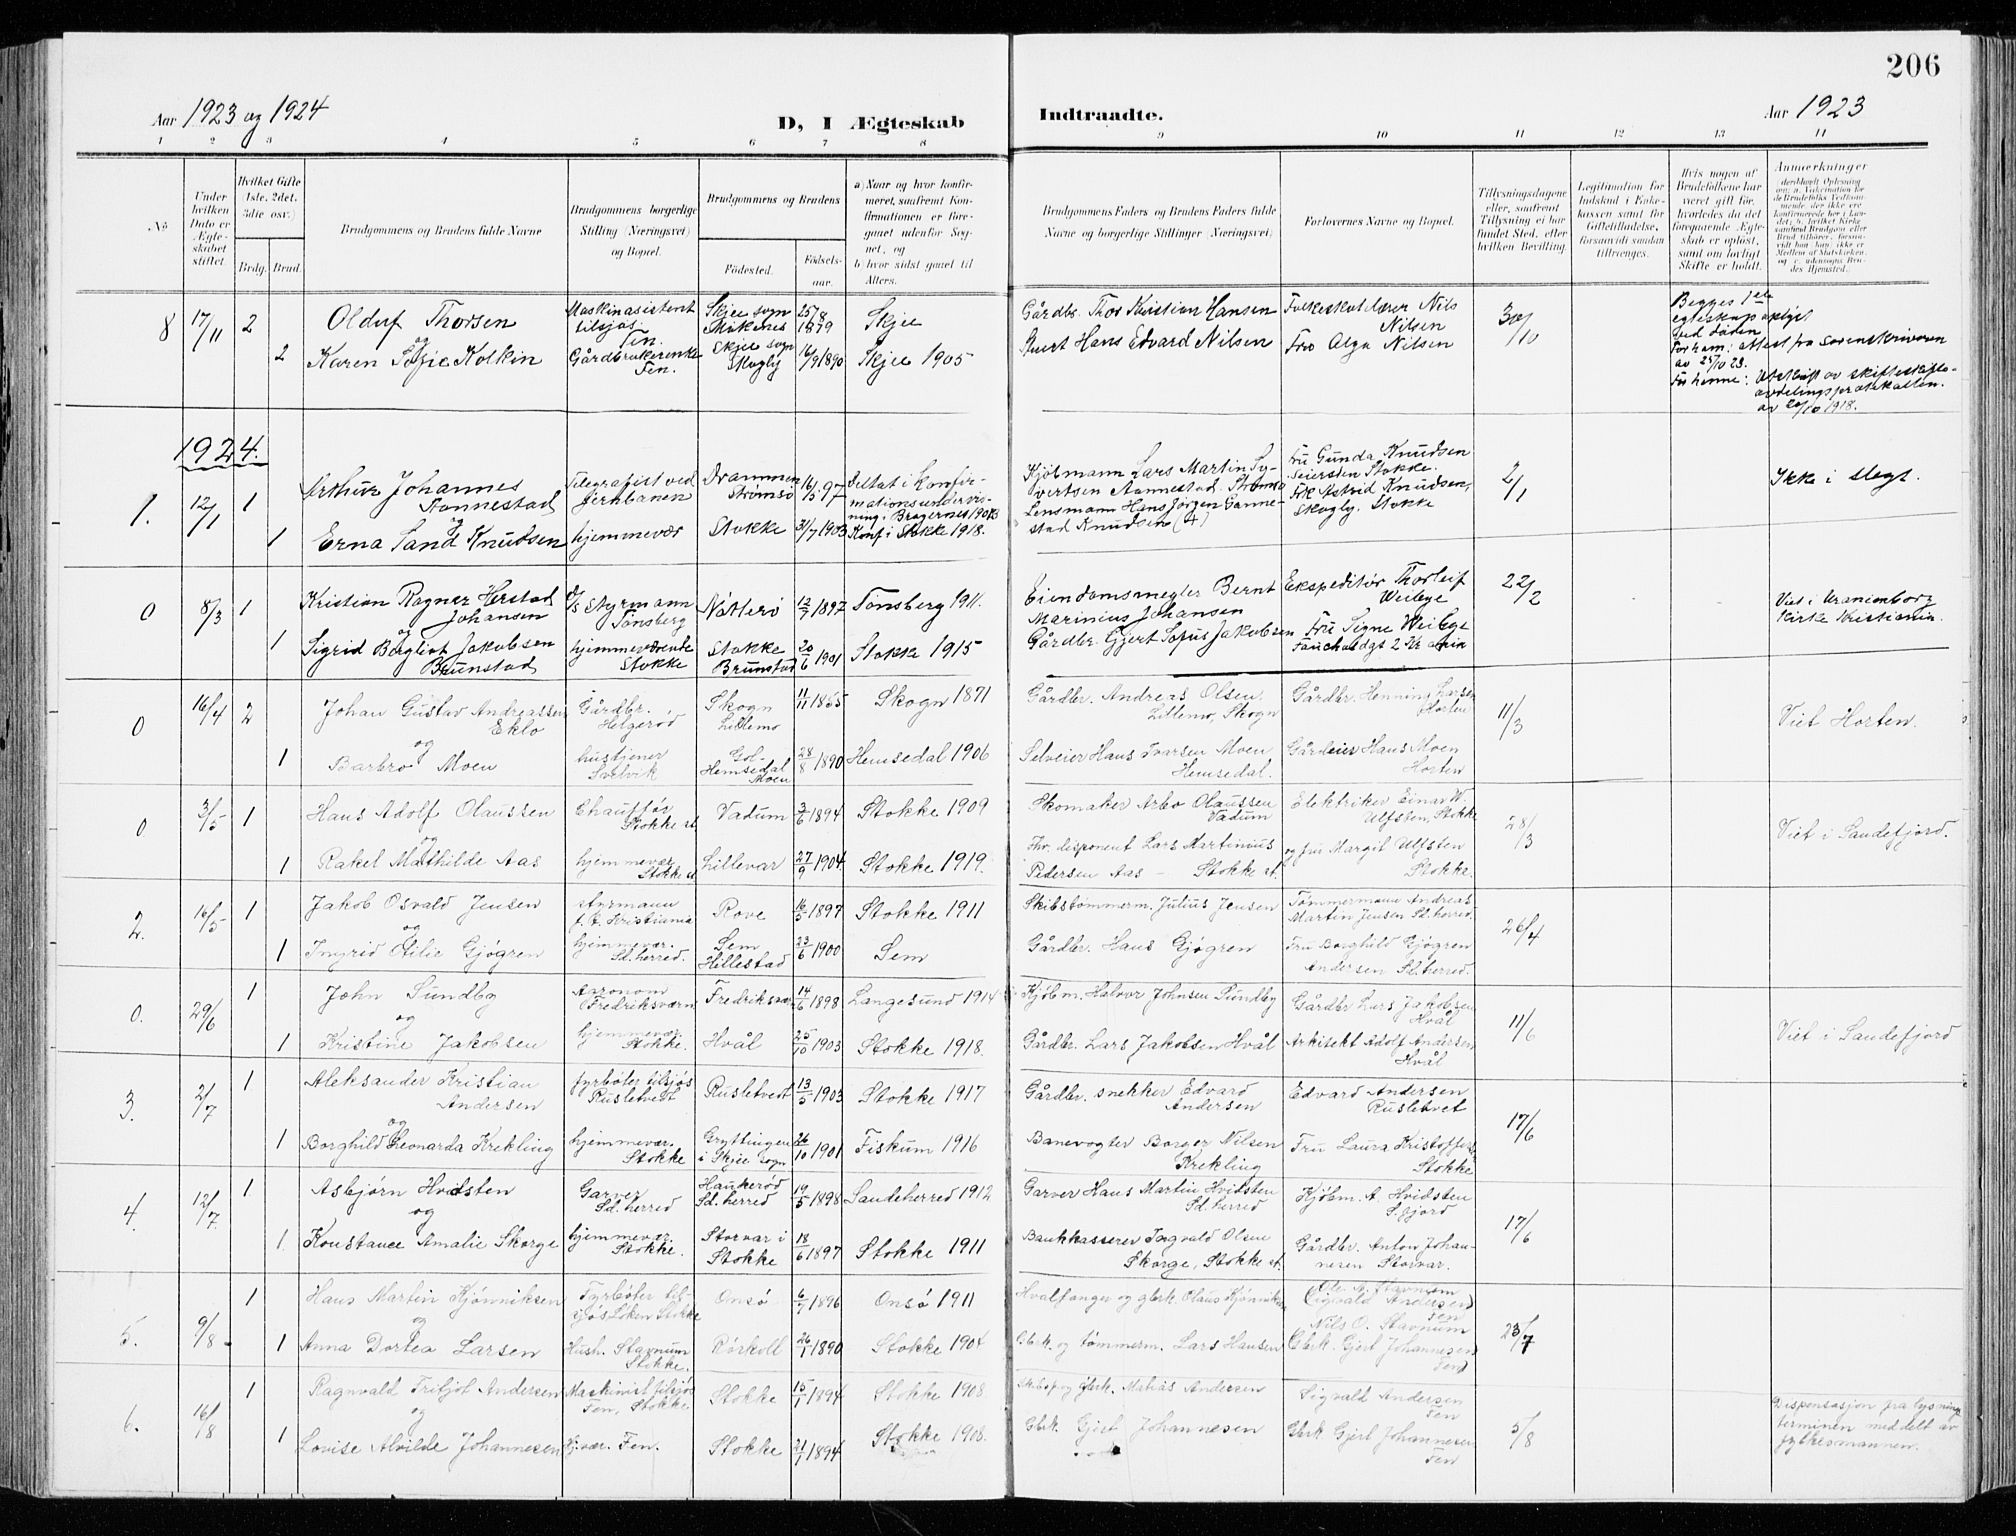 206
Aar 1923 og 1924
D, I Ægteskab
Indtraadte.
Aar 1923
1 2 3 4 5 6 7 8 9 10 11 12 13 14
No
Under hvilken Dato er Ægteskabet stiftet.
Hvilket Gifte (1ste, 2det, 3die osv.)
Brdg. Brud.
Brudgommens og Brudens fulde Navne
Brudgommens borgerlige Stilling (Næringsvei) og Bopæl.
Brudgommens og Brudens
Födested.
Födselsaar.
a) Naar og hvor konfirmeret, saafremt Konfirmationen er foregaaet udenfor Sognet, og
b) hvor sidst gaaet til Alters.
Brudgommens Faders og Brudens Faders fulde Navne og borgerlige Stillinger (Næringsvei)
Forlovernes Navne og Bopæl.
Tillysningsdagene eller, saafremt Tillysning ei har fundet Sted, efter hvilken Bevilling.
Legitimation for Indskud i Enkekassen samt for Giftetilladelse, forsaavidt saadan tiltrænges.
Hvis nogen af Brudefolkene har været gift før, hvorledes da det foregaaende Ægteskab er opløst, samt om lovligt Skifte er holdt.
Anmerkninger
8 17/11 2 Oluf Thorsen
og
Maskinasistent tilsjøs Fen.
Skjee sogn
25/8 1879 Skjee
Gårdbr. Thor Kristian Hansen
Folkeskolelærer Nils Nilsen
30/10
Begges 1ste egteskap opløst ved døden
For ham: attest fra sorenskriveren av 25/10 23.
For henne: Utskrift av skifteskjøte-
av 20/10 1918.
2 Karen Sofie Kolkin
Gårdbrukerenke Fen.
Skjee sogn Skogly
16/9 1890 Skjee 1905
Hans Edvard Nilsen
Fru Olga Nilsen
1924.
1. 12/1 1 Arthur Johannes Aannestad
og
Telegrafist ved Jernbanen
Drammen Strømsø
16/5 97
Deltat i konfirmationsundervisning i Bragernes
Kjøbmann Lars Martin Syvertsen Aannestad. Strømsø
Fru Gunda Knudsen Seiersten Stokke.
2/1
Ikke i slegt.
1 Erna Sand Knudsen
hjemmevær
Stokke
31/7 1903
Konf i Stokke 1918.
Lensmann Hans Jørgen Gannestad Knudsen (4)
Frk Astrid Knudsen, Skogly, Stokke
0 8/3 1 Kristian Ragnar Herstad Johansen
og
Styrmann Tønsberg
Nøtterø
12/7 1897 Tønsberg 1911.
Eiendomsmegler Bernt Marinius Johansen
Ekspeditør Thorleif Weibye
22/2
Viet i Uranienborg Kirke Kristiania.
1 Sigrid Bergliot Jakobsen Brunstad
hjemmeværende Stokke
Stokke Brunstad
20/6 1901 Stokke 1915
Gårdbr. Gjert Sofus Jakobsen
Fru Signe Weibye
0 16/4 2 Johan Gustav Andreassen Eklo
og
Gårdbr. Helgerød
Skogn Litlemo
11/11 1855 Skogn 1871
Gårdbr. Andreas Olsen, Litlemo, Skogn
Gårdbr. Henning Larsen Horten
11/3
Viet Horten.
1 Barbro Moen
hustjener Svelvik
Gol-Hemsedal Moen
28/8 1890 Hemsedal 1906
Selveier Hans Ivarsen Moen Hemsedal.
Gårdeier Hans Moen Horten
0. 3/5 1 Hans Adolf Olaussen
og
Chauffør Stokke st
Vadum
3/6 1894 Stokke 1909
Skomaker Arbo Olaussen Vadum
Elektriker Einar W. Ulfsten, Stokke
28/3
Viet i Sandefjord.
1 Rakel Mathilde Aas
hjemmevær Stokke st
Lillevar
27/9 1904 Stokke 1919.
Fhv. disponent Lars Martinius Pedersen Aas - Stokke st.
og fru Margit Ulfsten Stokke.
2. 16/5 1 Jakob Osvald Jensen
og
styrmann f.t. Kristiania
Rove
16/5 1897 Stokke 1911
Skibstømmerm. Julius Jensen
Tømmermann Andreas Martin Jensen Sd. herred.
26/4
1 Ingrid Otilie Gjøgren
hjemmevær. Sd. herred.
Sem Hillestad
23/6 1900 Sem
Gårdbr. Hans Gjøgren
Fru Borghild Gjøgren Andersen Sd. herred.
0. 29/6 1 John Sundby
og
Agronom Fredriksværn
Fredriksværn
14/6 1898 Langesund 1914
Kjøbm. Halvor Johnsen Sundby
Gårdbr Lars Jakobsen Hvål
11/6
Viet i Sandefjord
1 Kristine Jakobsen
hjemmevær. Stokke.
Hvål
25/10 1903 Stokke 1918.
Gårdbr. Lars Jakobsen Hvål
Arkitekt Adolf Andersen Hvål
3. 2/7 1 Aleksander Kristian Andersen
og
fyrbøter tilsjøs Rusletvedt
Rusletvedt
13/5 1903 Stokke 1917
Gårdbr. snekker Edvard Andersen
Edvard Andersen Rusletvet
17/6
1 Borghild Leonarda Krekling
hjemmevær. Stokke
Gryttingen i Skjee sogn
26/10 1901 Fiskum 1916
Banevogter Borger Nilsen Krekling
Fru Laura Kristoffersen Stokke
4. 12/7. 1 Asbjørn Hvidsten
og
Garver Sd. herred
Haukerød Sd. herred
19/5 1898 Sandeherred 1912
Garver Hans Martin Hvidsten Sd. herred
Kjøbm. A. Hvidsten S.fjord
17/6
1. Konstance Amalie Skorge
hjemmevær. Stokke.
Storvar i Stokke
18/6 1897 Stokke 1911
Bankkasserer Ingvald Olsen Skorge, Stokke st.
Gårdbr. Anton Johannesen Storvar.
5. 9/8 1 Hans Martin Kjønniksen
og
Fyrbøter tilsjøs Løken Stokke
Onsø
6/7 1896 Onsø 1911
Hvalfanger og gbrk. Olaus Kjønniksen
(Sigvald Andersen) Fen
23/7
1 Anna Dortea Larsen
Hush. Stavnum Stokke.
Rørkoll
26/1 1890 Stokke 1904
Gbrk. og tømmerm. Lars Hansen
Nils O. Stavnum
(Gbrk. Gjert Johannesen Fen)
6. 16/8 1 Ragnvald Fritjof Andersen
og
Maskinist tilsjøs Fen, Stokke
Stokke
15/1 1894 Stokke 1908
Skibsp og gbrk. Matias Andersen
Sigvald Andersen Fen
5/8
Dispensasjon fra lysningsterminen meddelt av fylkesmannen.
1 Lovise Alvilde Johannesen
Hj. vær. Fen.
Stokke
21/7 1894 Stokke 1908.
Gbrk. Gjert Johannesen
Gbrk Gjert Johannesen Fen